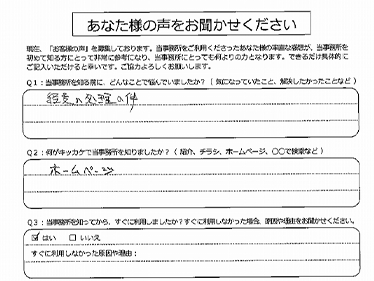 あなた様の声をお聞かせください
現在、「お客様の声」を募集しております。当事務所をご利用くださったあなた様の率直な感想が、当事務所を
初めて知る方にとって非常に参考になり、当事務所にとっても何よりの力となります。できるだけ具体的に
ご記入いただけると幸いです。ご協力よろしくお願いします。
Q1：当事務所を知る前に、どんなことで悩んでいましたか？（気になっていたこと、解決したかったことなど）
経費の処理の件
Q2：何がキッカケで当事務所を知りましたか？（紹介、チラシ、ホームページ、〇〇で検索など）
ホームページ
Q3：当事務所を知ってから、すぐに利用しましたか？すぐに利用しなかった場合、原因や理由をお聞かせください。
☑ はい □ いいえ
すぐに利用しなかった原因や理由：